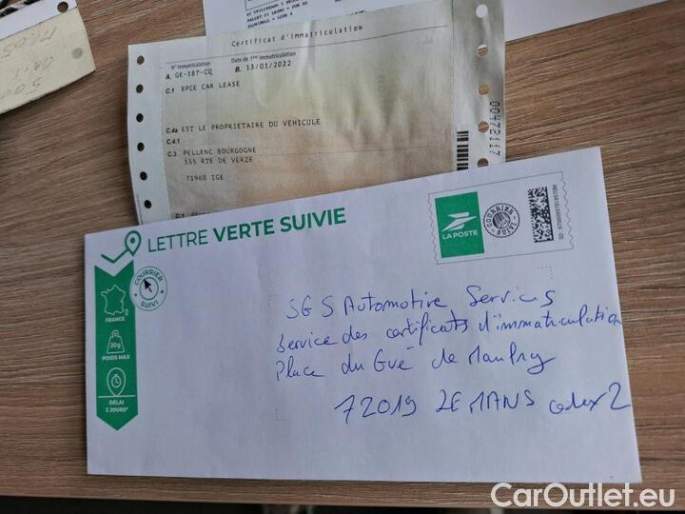 Certificat d'immatriculation
N° Immatriculation
Date de 1ère immatriculation
A. GE-187-CQ
B. 13/01/2022
C.1 BPCE CAR LEASE
C.4a EST LE PROPRIETAIRE DU VEHICULE
C.4.1
C.3 PELLENC BOURGOGNE
555 RTE DE VERZE
71960 IGE
00472117
LETTRE VERTE SUIVIE
COURRIER
SUIVI
FRANCE
20g
POIDS MAX
DÉLAI
2 JOURS*
LA POSTE
SGS Automotive Services
Service des certificats d'immatriculation
Place du Gué de Maulny
72019 LE MANS cedex 2
CarOutlet.eu